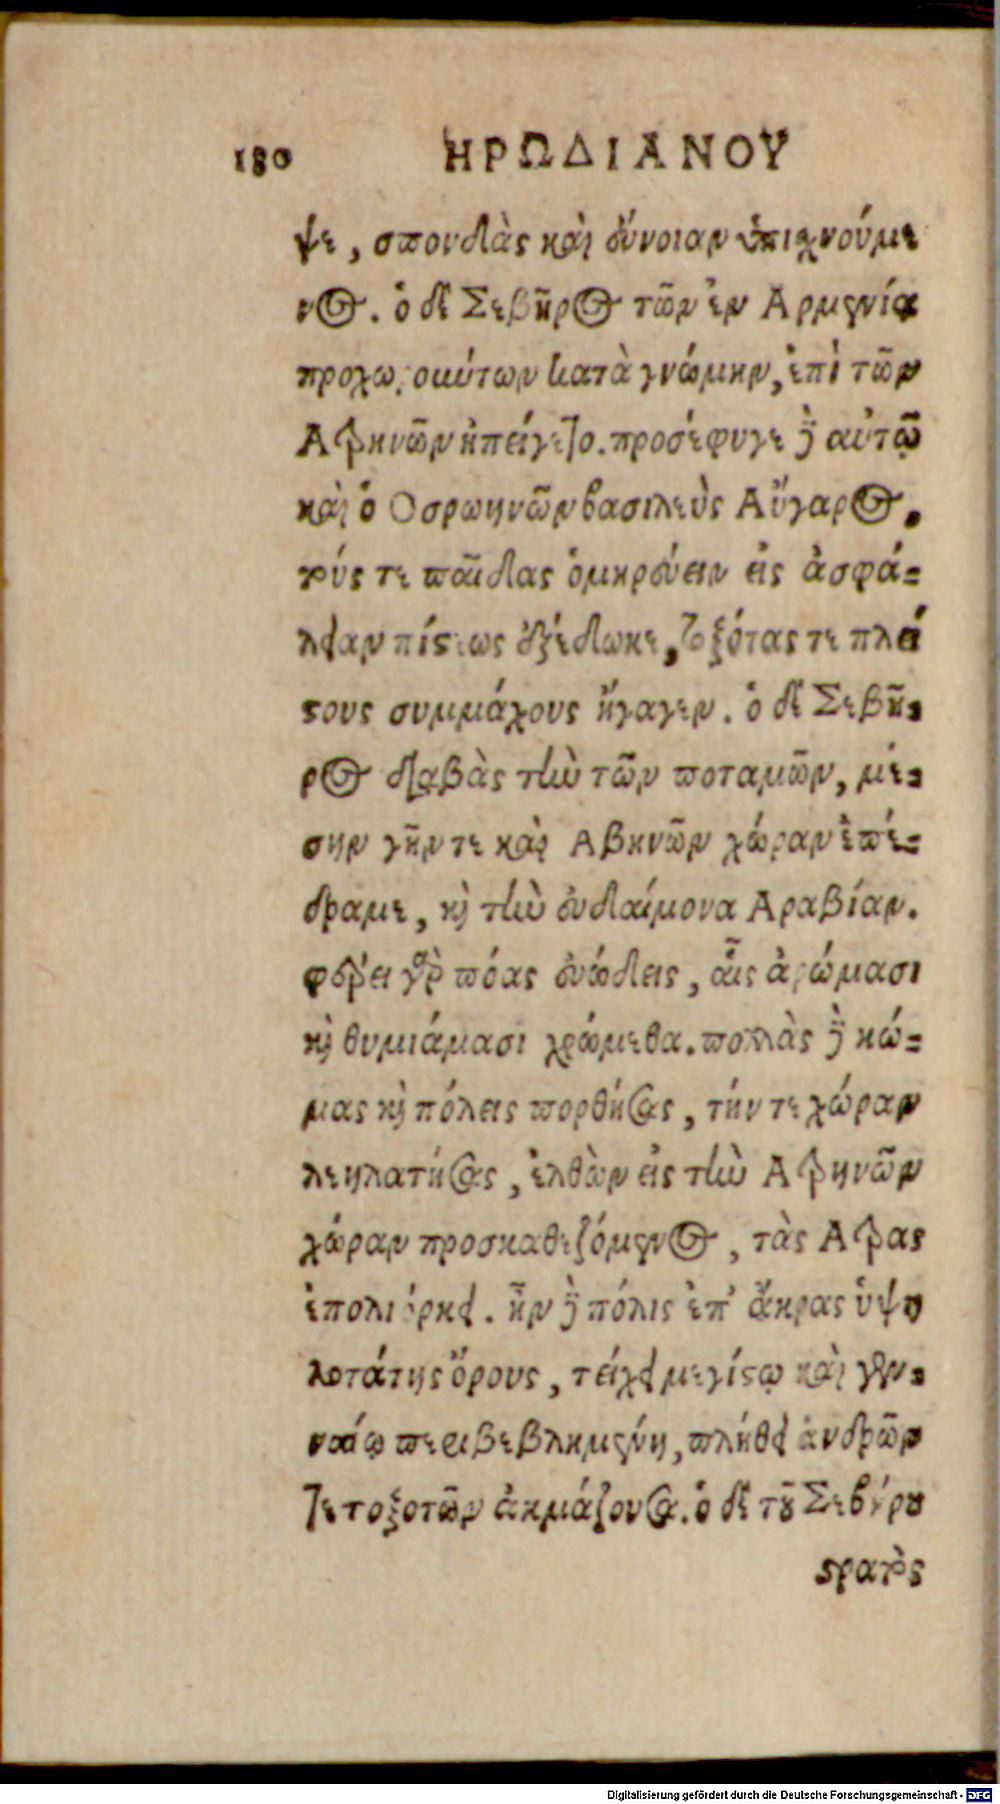 180 ΗΡΩΔΙΑΝΟΥ
ψε, σπονδὰς καὶ εὔνοιαν ὑπιχνούμε
νος. ὁ δὲ Σεβῆρος τῶν ἐν Αρμενίᾳ
προχωρούντων κατὰ γνώμην, ἐπὶ τῶν
Ατρηνῶν ἠπείγετο. προσέφυγε δὲ αὐτῷ
καὶ ὁ Οσρωηνῶν βασιλεὺς Αὔγαρος.
τούς τε παῖδας ὁμηρεύειν εἰς ἀσφά=
λειαν πίστεως ἐξέδωκε, τοξότας τε πλεί
στους συμμάχους ἤγαγεν. ὁ δὲ Σεβῆ=
ρος διαβὰς τὴν τῶν ποταμῶν, μέ=
σην γῆν τε καὶ Αβηνῶν χώραν ἐπέ=
δραμε, καὶ τὴν εὐδαίμονα Αραβίαν.
φέρει γὰρ πόας εὐώδεις, αἷς ἀρώμασι
καὶ θυμιάμασι χρώμεθα. πολλὰς δὲ κώ=
μας καὶ πόλεις πορθήσας, τήν τε χώραν
λεηλατήσας, ἐλθὼν εἰς τὴν Ατρηνῶν
χώραν προσκαθεζόμενος, τὰς Ατρας
ἐπολιόρκει. ἦν δὲ πόλις ἐπ’ ἄκρας ὑψη
λοτάτης ὄρους, τείχει μεγίστῳ καὶ γεν=
ναίῳ περιβεβλημένη, πλήθει ἀνδρῶν
τε τοξοτῶν ἀκμάζουσα. ὁ δὲ τοῦ Σεβήρου
στρατὸς
Digitalisierung gefördert durch die Deutsche Forschungsgemeinschaft - DFG